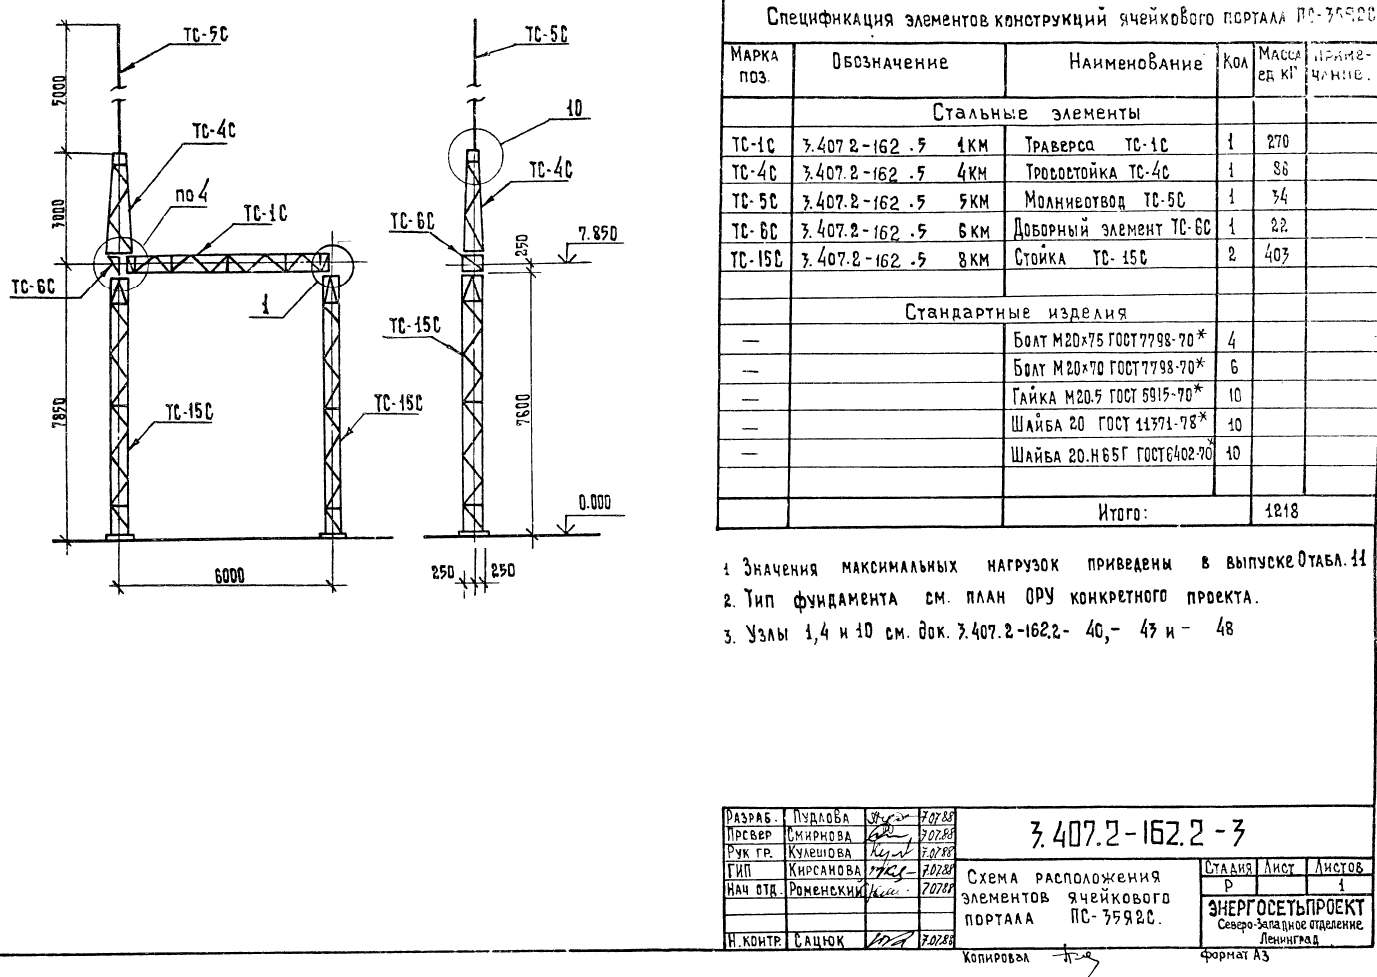 ТС-5С
5000
ТС-4С
3000
по 4
ТС-1С
ТС-6С
1
7850
ТС-15С
ТС-15С
6000
ТС-5С
10
ТС-4С
ТС-6С
250
7.850
ТС-15С
7600
0.000
250 250
Спецификация элементов конструкций ячейкового портала ПС-35Я2С
Марка поз. Обозначение Наименование Кол Масса ед кг Приме-чание.
Стальные элементы
ТС-1С 3.407.2-162.5 1КМ Траверса ТС-1С 1 270
ТС-4С 3.407.2-162.5 4КМ Тросостойка ТС-4С 1 86
ТС-5С 3.407.2-162.5 5КМ Молниеотвод ТС-5С 1 34
ТС-6С 3.407.2-162.5 6КМ Доборный элемент ТС-6С 1 22
ТС-15С 3.407.2-162.5 8КМ Стойка ТС-15С 2 403
Стандартные изделия
— Болт М20×75 ГОСТ 7798-70* 4
— Болт М20×70 ГОСТ 7798-70* 6
— Гайка М20.5 ГОСТ 5915-70* 10
— Шайба 20 ГОСТ 11371-78* 10
— Шайба 20.Н65Г ГОСТ 6402-70* 10
Итого: 1218
1 Значения максимальных нагрузок приведены в выпуске 0 табл. 11
2. Тип фундамента см. план ОРУ конкретного проекта.
3. Узлы 1,4 и 10 см. док. 3.407.2-162.2- 40,- 43 и - 48
Разраб. Пудлова 7.07.88
Провер Смирнова 7.07.88
Рук гр. Кулешова 7.07.88
ГИП Кирсанова 7.07.88
Нач отд. Роменский 7.07.88
Н.контр. Сацюк 7.07.88
3.407.2-162.2-3
Схема расположения
элементов ячейкового
портала ПС-35Я2С.
Стадия Лист Листов
Р 1
ЭНЕРГОСЕТЬПРОЕКТ
Северо-Западное отделение
Ленинград
Копировал
Формат А3